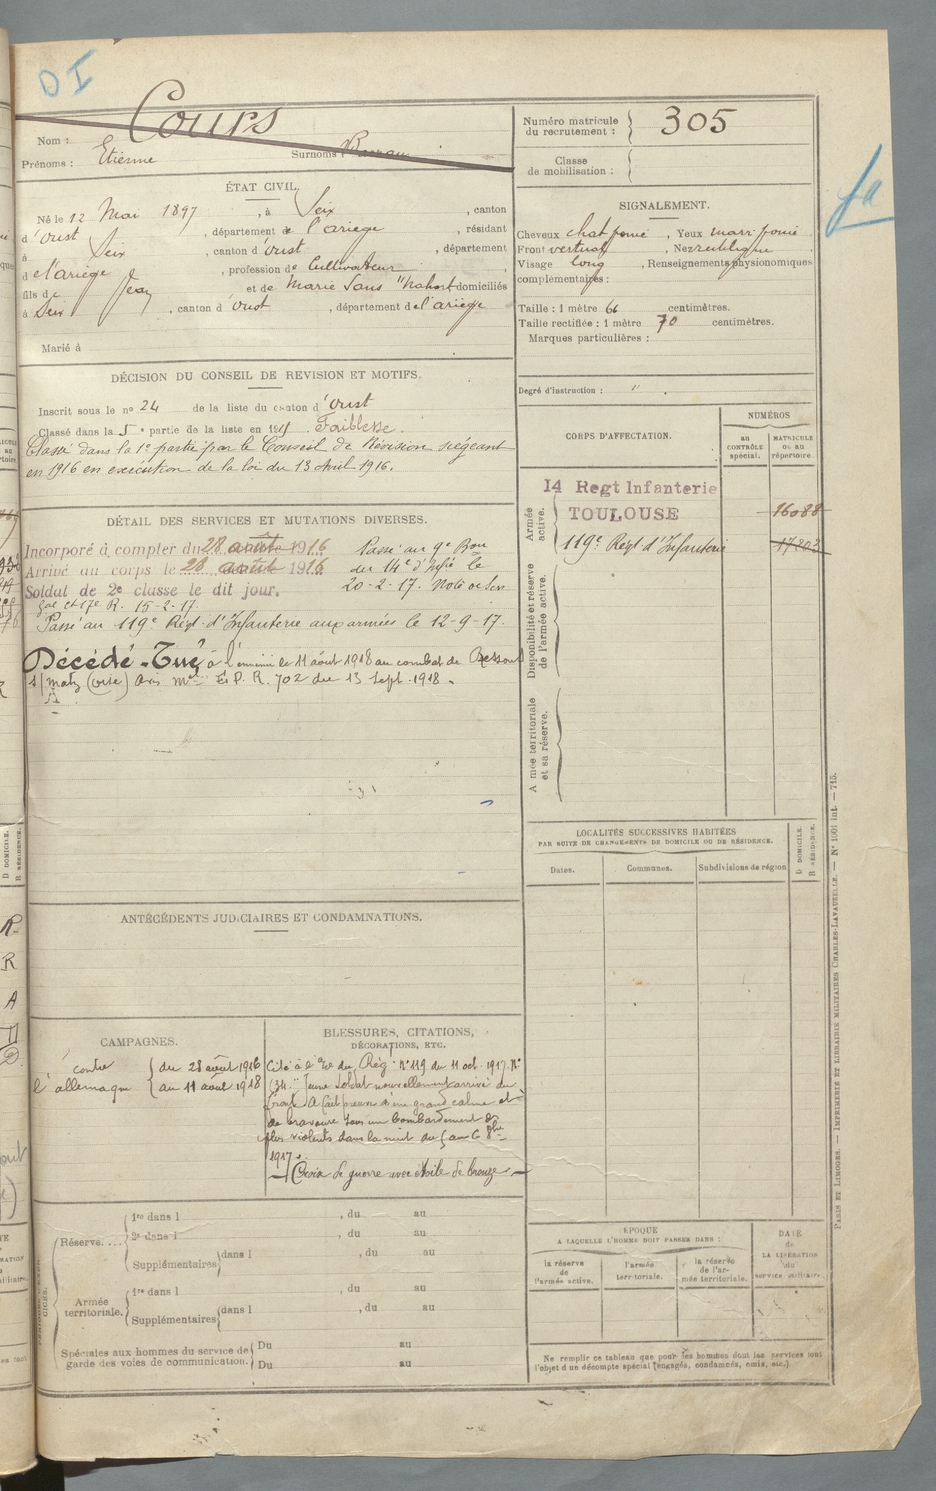 D I
Cours
Nom :
Prénoms : Etienne Surnoms :
Numéro matricule
du recrutement : 305
Classe
de mobilisation :
ÉTAT CIVIL.
Né le 12 Mai 1897, à Seix, canton
d'Oust, département de l'ariège, résidant
à Seix, canton d'Oust, département
d el'ariège, profession de Cultivateur,
fils de Jean et de Marie Sans "Nahort" domiciliés
à Seix, canton d'Oust, département de l'ariège
Marié à
SIGNALEMENT.
Cheveux chat foncé, Yeux marr foncé
Front vertical, Nez rectiligne
Visage long, Renseignements physionomiques
complémentaires :
Taille : 1 mètre 66 centimètres.
Taille rectifiée : 1 mètre 70 centimètres.
Marques particulières :
Degré d'instruction : "
DÉCISION DU CONSEIL DE REVISION ET MOTIFS.
Inscrit sous le nº 24 de la liste du canton d'Oust
Classé dans la 5e partie de la liste en 191 Faiblesse.
Classé dans la 1e partie par le Conseil de Révision siégeant
en 1916 en execution de la loi du 13 Avril 1916.
DÉTAIL DES SERVICES ET MUTATIONS DIVERSES.
Incorporé à compter du 28 août 1916 Passé au 9e Bon
Arrivé au corps le 28 août 1916 du 14e d'Infie le
Soldat de 2e classe le dit jour. 20-2-17. Note de Ser
Gal et 17e R. 15-2-17.
Passé au 119e Régt d'Infanterie aux armées le 12-9-17.
Décédé - Tué à l'ennemi le 11 août 1918 au combat de Ressons
s/matz (oise) Avis mel El P. R. 702 du 13 Sept. 1918.
CORPS D'AFFECTATION.
NUMÉROS
au
CONTRÔLE
spécial.
MATRICULE
OU AU
répertoire.
Armée
active.
14 Regt Infanterie
TOULOUSE 16088
119e Régt d'Infanterie
Disponibilité et réserve
de l'armée active.
Armée territoriale
et sa réserve.
LOCALITÉS SUCCESSIVES HABITÉES
PAR SUITE DE CHANGEMENTS DE DOMICILE OU DE RÉSIDENCE.
Dates.
Communes.
Subdivisions de région
D DOMICILE.
R RÉSIDENCE.
ANTÉCÉDENTS JUDICIAIRES ET CONDAMNATIONS.
CAMPAGNES.
contre du 28 août 1916
l'allemagne au 11 août 1918
BLESSURES, CITATIONS,
DÉCORATIONS, ETC.
Cité à l'Ore du Rég. Nº 119 du 11 oct. 1917. Nº
134. "Jeune Soldat nouvellement arrivé au
front. A fait preuve d'une grand calme et
de bravoure sous un bombardement des
plus violents dans la nuit du 5 au 6 8bre
1917".
Croix de guerre avec étoile de bronze
Réserve.....
1re dans l , du au
2e dans l , du au
Supplémentaires dans l , du au
Armée
territoriale.
1re dans l , du au
Supplémentaires dans l , du au
Spéciales aux hommes du service de
garde des voies de communication.
Du au
Du au
ÉPOQUE
A LAQUELLE L'HOMME DOIT PASSER DANS :
la réserve
de
l'armée active.
l'armée
territoriale.
la réserve
de l'ar-
mée territoriale.
DATE
de
LA LIBÉRATION
du
service militaire.
Ne remplir ce tableau que pour les hommes dont les services font
l'objet d'un décompte spécial (engagés, condamnés, omis, etc.)
PARIS ET LIMOGES. — IMPRIMERIE ET LIBRAIRIE MILITAIRES CHARLES-LAVAUZELLE. — Nº 1001 int. — 715.